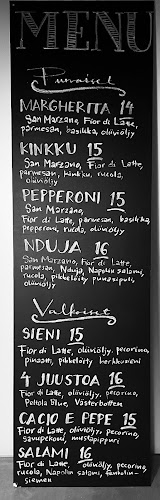 MENU
Punaiset
MARGHERITA 14
San Marzano, Fior di Latte,
parmesan, basilika, oliiviöljy
KINKKU 15
San Marzano, Fior di Latte,
parmesan, kinkku, rucola,
oliiviöljy
PEPPERONI 15
San Marzano,
Fior di Latte, parmesan, basilika,
Pepperoni, rucola, oliiviöljy
NDUJA 16
San Marzano, Fior di Latte,
parmesan, Nduja, Napolin salami,
rucola, pikkelöity punasipuli,
oliiviöljy
Valkoiset
SIENI 15
Fior di Latte, oliiviöljy, pecorino,
pinaatti, pikkelöity herkkusieni
4 JUUSTOA 16
Fior di Latte, oliiviöljy, pecorino,
Peltola Blue, Västerbotten
CACIO E PEPE 15
Fior di Latte, oliiviöljy, pecorino,
mustapippuri
SALAMI 16
Fior di Latte, oliiviöljy, pecorino,
rucola, Napolin salami, fenkolin-
siemen